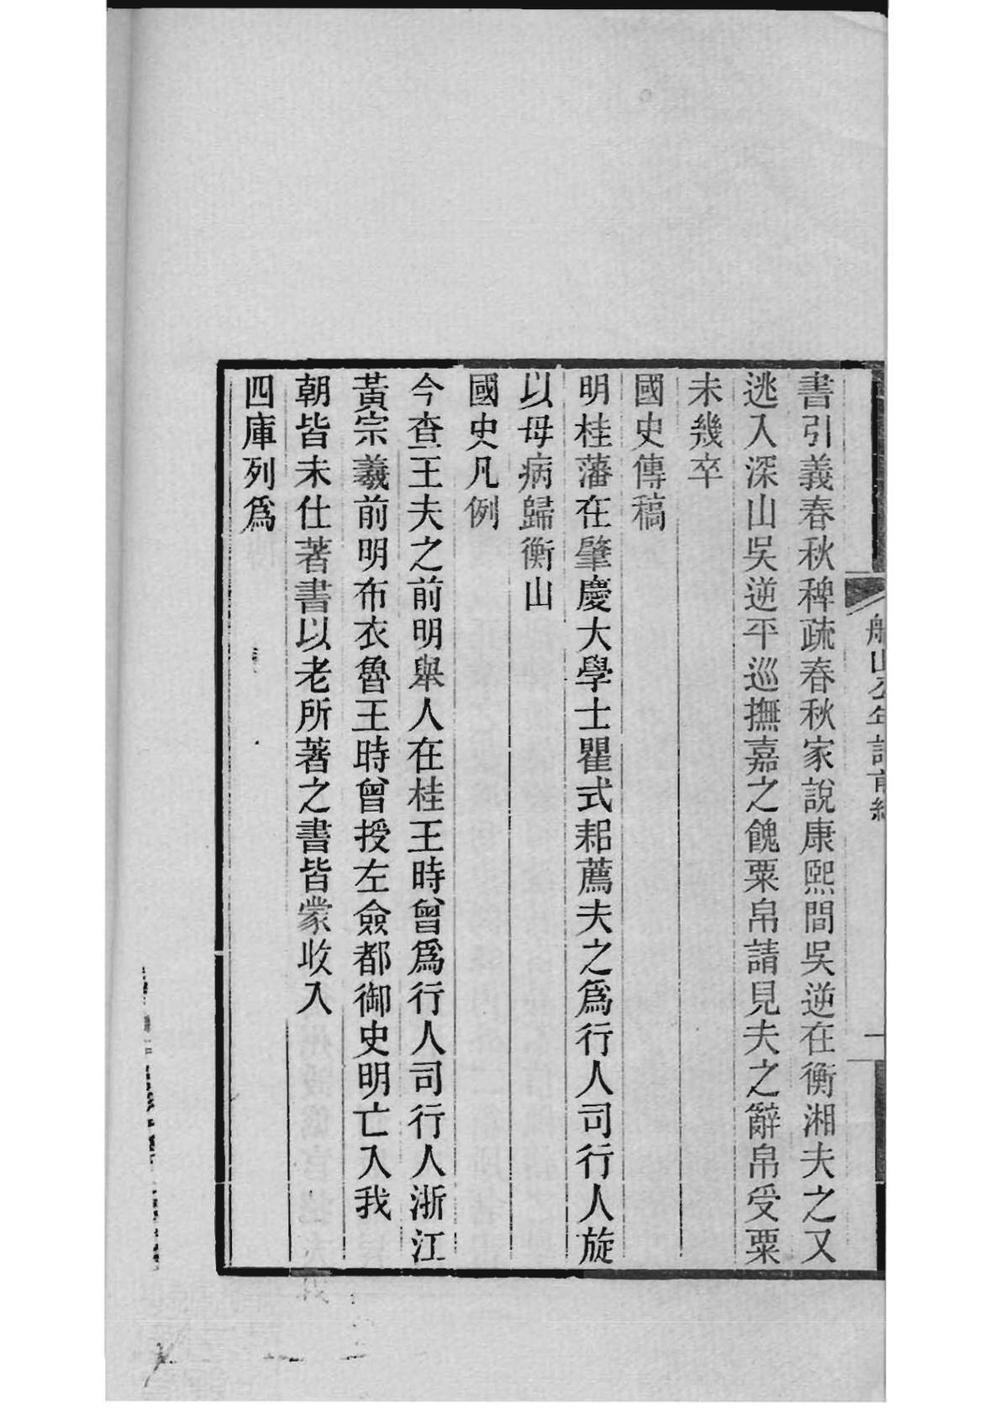 書引義春秋稗疏春秋家說康熙間吳逆在衡湘夫之又
逃入深山吳逆平巡撫嘉之餽粟帛請見夫之辭帛受粟
未幾卒
國史傳稿
明桂藩在肇慶大學士瞿式耜薦夫之爲行人司行人旋
以母病歸衡山
國史凡例
今查王夫之前明舉人在桂王時曾爲行人司行人浙江
黃宗羲前明布衣魯王時曾授左僉都御史明亡入我
朝皆未仕著書以老所著之書皆蒙收入
四庫列爲